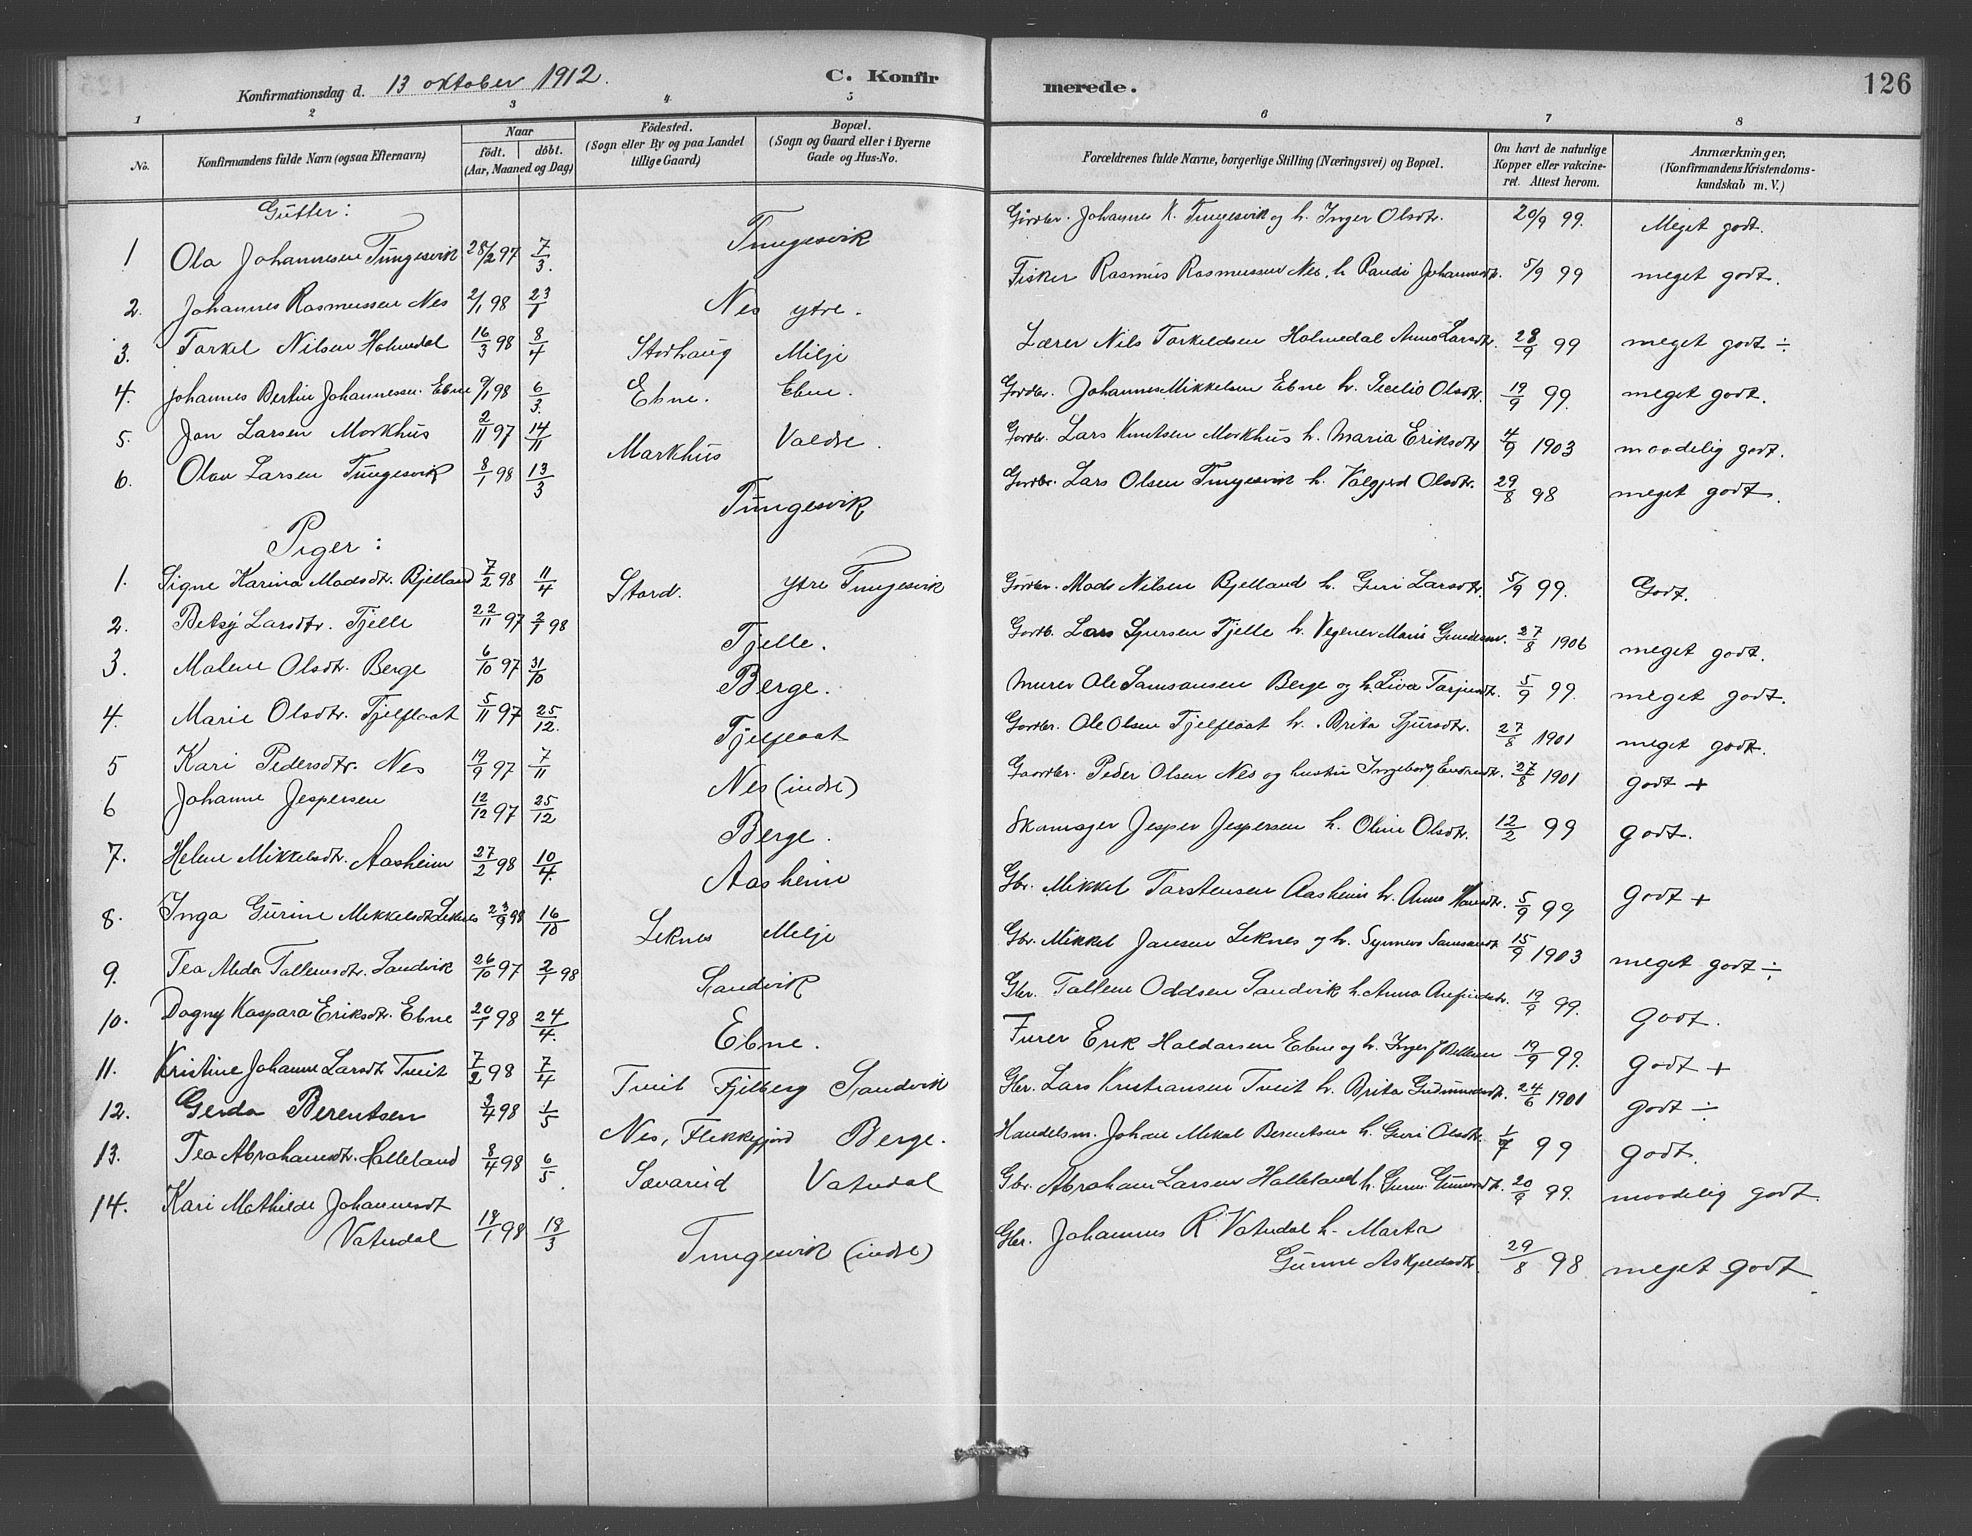 126
Konfirmationsdag d. 13 oktober 1912. C. Konfirmerede.
1 2 3 4 5 6 7 8
No. Konfirmandens fulde Navn (ogsaa Efternavn) Naar født. døbt. (Aar, Maaned og Dag) Födested. (Sogn eller By og paa Landet tillige Gaard) Bopæl. (Sogn og Gaard eller i Byerne Gade og Hus-No. Forældrenes fulde Navne, borgerlige Stilling (Næringsvei) og Bopæl. Om havt de naturlige Kopper eller vakcineret. Attest herom. Anmærkninger, (Konfirmandens Kristendomskundskab m. V.)
Gutter:
1 Ola Johannesen Tungesvik 28/2 97 7/3. Tungesvik Gårdbr. Johannes K. Tungesvik og h. Inger Olsdtr. 20/9 99. Meget godt.
2. Johannes Rasmussen Nes 2/1 98 23/1 Nes ytre. Fisker Rasmus Rasmussen Nes, h. Randi Johannesdtr. 5/9 99 meget godt.
3. Torkel Nilsen Holmedal 16/3 98 8/4 Stødhaug Milje Lærer Nils Torkeldsen Holmedal Anna Larsdtr. 28/9 99 meget godt ÷
4. Johannes Bertin Johannessen Ebne 9/1 98 6/3. Ebne. Ebne. Gårdbr. Johannes Mikkelsen Ebne h. Secelia Olsdtr. 19/9 99. meget godt.
5. Jon Larsen Markhus 2/11 97 14/11 Markhus Valdre. Gårdbr. Lars Knutsen Markhus h. Maria Eriksdtr. 4/9 1903 maadelig godt.
6. Olav Larsen Tungesvik 8/1 98 13/3 Tungesvik Gårdbr. Lars Olsen Tungesvik h. Valgjerd Olsdtr. 29/8 98 meget godt.
Piger:
1. Signe Karina Madsdtr. Bjelland 7/2 98 11/4 Stord. ytre Tungesvik Gårdbr. Mads Nilsen Bjelland h. Guri Larsdtr. 5/9 99. Godt.
2. Betsy Larsdtr. Tjelle 22/11 97 2/1 98 Tjelle. Gårdb. Lars Tjelle h. Marie 27/8 1906 meget godt.
3. Malene Olsdtr. Berge 6/10 97 31/10 Berge. Murer Ole Samsonsen Berge og h. Liva 5/9 99. meget godt.
4. Marie Olsdtr. Tjelflaat 5/11 97 25/12. Tjelflaat Gårdbr. Ole Olsen Tjelflaat h. Brita Sjursdtr. 27/8 1901 meget godt.
5 Kari Pedersdtr. Nes 19/9 97 7/11 Nes (indre) Gaardbr. Peder Olsen Nes og hustru Ingeborg 27/8 1901 godt +
6 Johanne Jespersen 12/12 97 25/12 Berge. Skomager Jesper Jespersen h. Oline Olsdtr. 12/2 99 godt.
7. Helene Mikkelsdtr. Aasheim 27/2 98 10/4. Aasheim Gbr. Mikkel Torstensen Aasheim h. Anna 5/9 99 godt +
8. Inga Gurine Mikkelsdtr. Leknes 98 16/10 Leknes Milje Gbr. Mikkel Jansen Leknes og h. Synneva Samsondtr 15/9 1903 meget godt ÷
9. Tea Meda Sandvik 26/10 97 2/1 98 Sandvik Gbr. Oddsen Sandvik h. Anna 19/9 99. godt.
10. Dagny Kaspara Eriksdtr. Ebne 20/1 98 24/4. Ebne. Furer Erik Haldorsen Ebne og h. Inger 19/9 99. godt +
11. Kristine Johanne Larsdtr Tveit 7/2 98 7/4 Tveit Fjelberg Sandvik Gbr. Lars Kristiansen Tveit h. Brita 24/6 1901 godt ÷
12. Gerda Berentsen 3/4 98 1/5 Nes, Flekkefjord Berge. Handelsm. Johan Mikal Berentsen h. Guri Olsdtr. 99 godt.
13. Tea Abrahamsdtr. Halleland 8/4 98 6/5. Sævareid Vatndal Gbr. Abraham Larsen Halleland h. 20/9 99. maadelig godt.
14. Kari Mathilde Johannesdt
Vatndal 18/1 98 18/3 Tungesvik (indre) Gbr. Johannes R. Vatndal h. Marta
Gurine Askjeldsdtr. 29/8 98 meget godt.